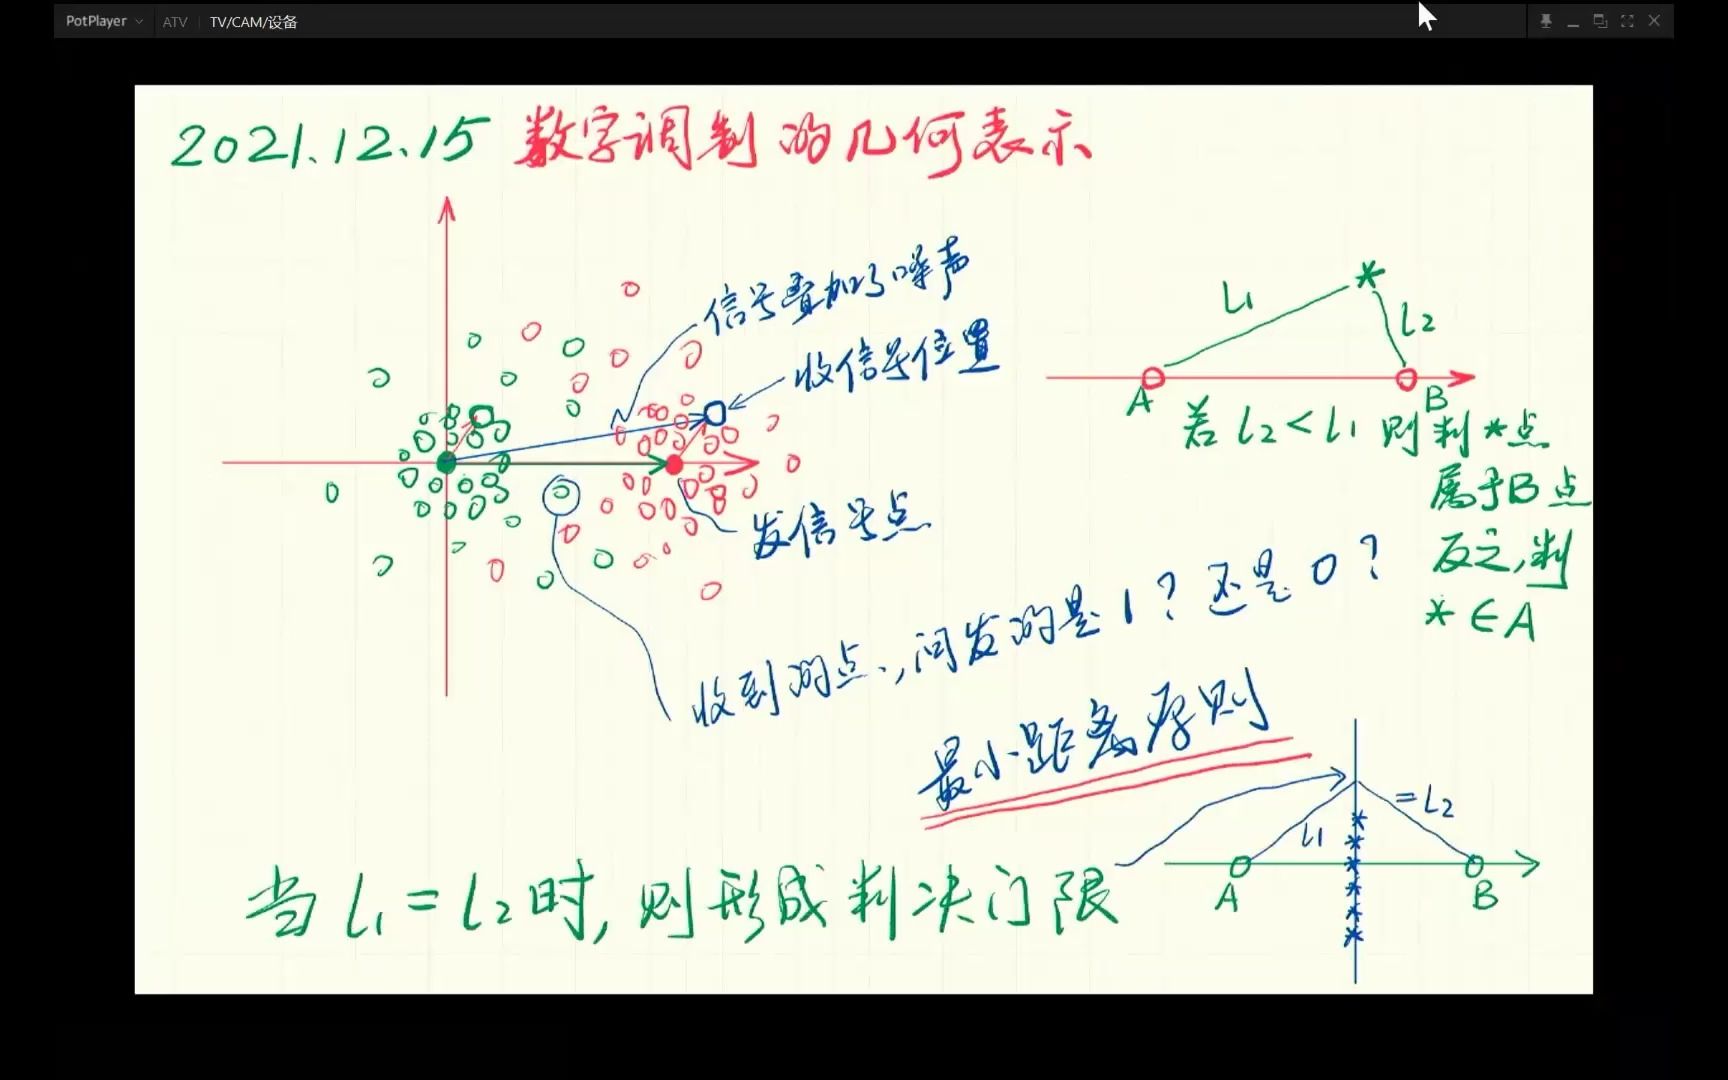 PotPlayer ATV TV/CAM/设备
2021.12.15 数字调制的几何表示
信号叠加了噪声
收信号位置
发信号点
收到的点,问发的是1?还是0?
最小距离序则
L1
L2
A
B
若 L2 < L1 则判 * 点
属于B点
反之,判
* ∈ A
L1
= L2
A
B
当 L1 = L2 时, 则形成判决门限